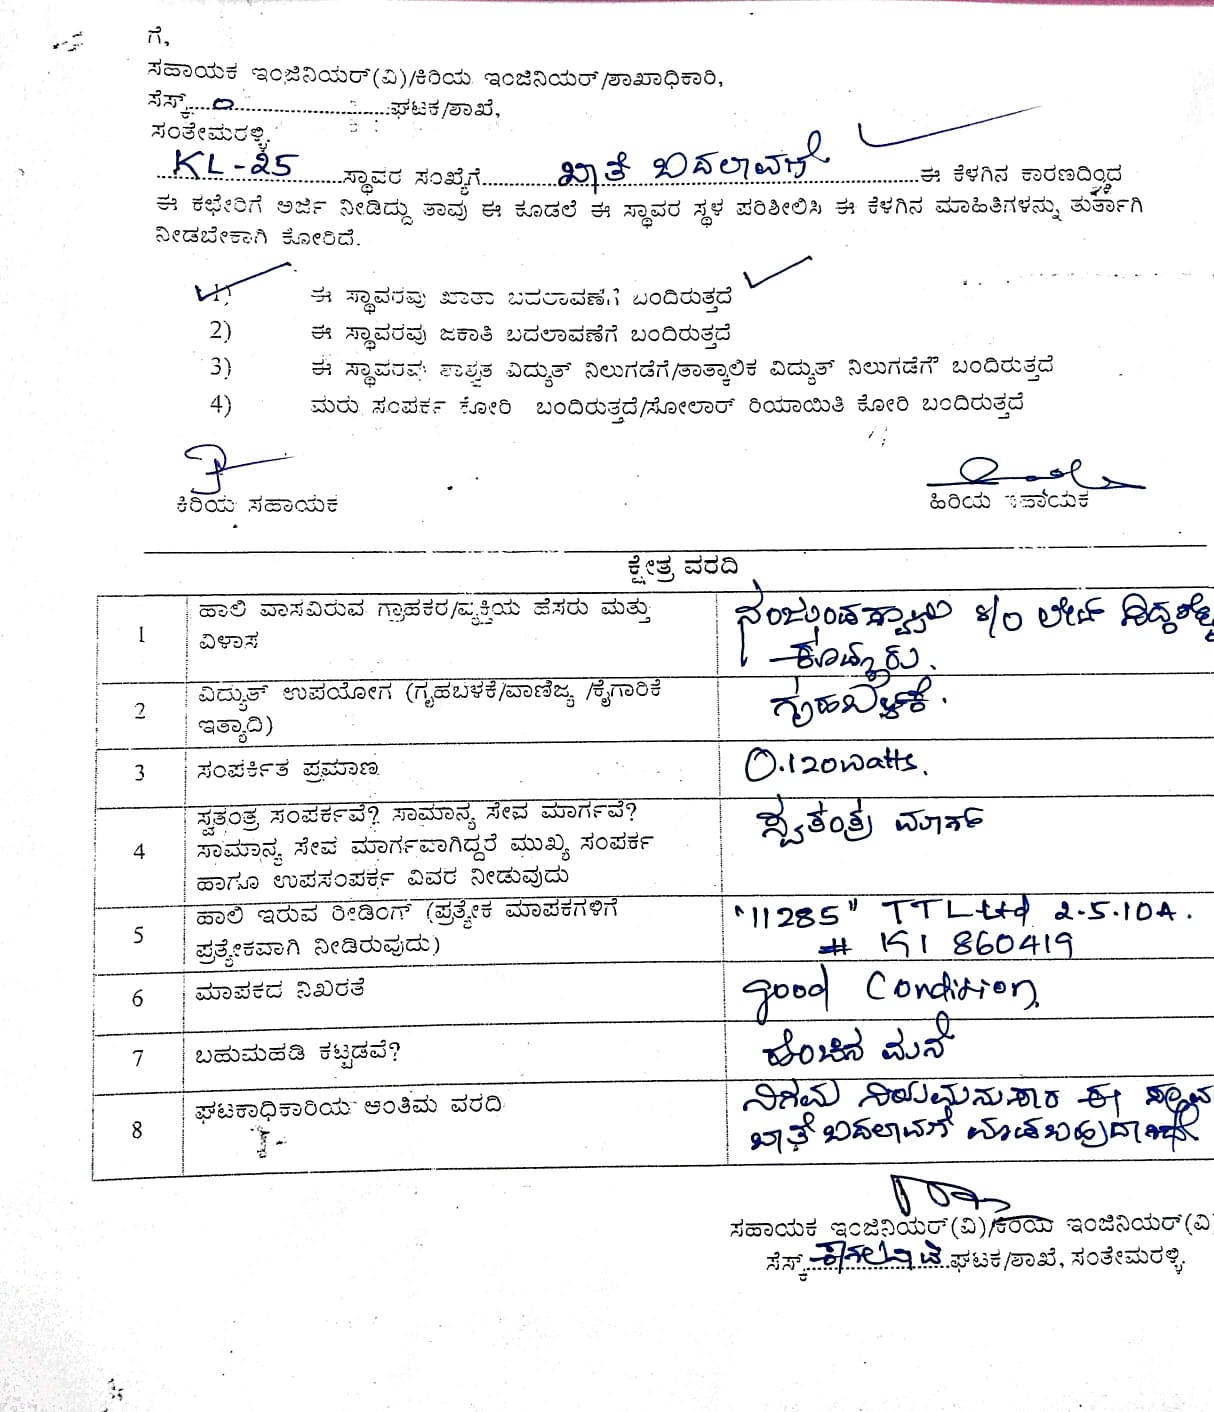 ಗೆ,
ಸಹಾಯಕ ಇಂಜಿನಿಯರ್(ವಿ)/ಕಿರಿಯ ಇಂಜಿನಿಯರ್/ಶಾಖಾಧಿಕಾರಿ,
ಸೆಸ್ಕ್ ........ಘಟಕ/ಶಾಖೆ,
ಸಂತೇಮರಳ್ಳಿ.
KL-25 ಸ್ಥಾವರ ಸಂಖ್ಯೆಗೆ ಖಾತೆ ಬದಲಾವಣೆ ಈ ಕೆಳಗಿನ ಕಾರಣದಿಂದ
ಈ ಕಛೇರಿಗೆ ಅರ್ಜಿ ನೀಡಿದ್ದು ತಾವು ಈ ಕೂಡಲೆ ಈ ಸ್ಥಾವರ ಸ್ಥಳ ಪರಿಶೀಲಿಸಿ ಈ ಕೆಳಗಿನ ಮಾಹಿತಿಗಳನ್ನು ತುರ್ತಾಗಿ
ನೀಡಬೇಕಾಗಿ ಕೋರಿದೆ.
1) ಈ ಸ್ಥಾವರವು ಖಾತಾ ಬದಲಾವಣೆಗೆ ಬಂದಿರುತ್ತದೆ
2) ಈ ಸ್ಥಾವರವು ಜಕಾತಿ ಬದಲಾವಣೆಗೆ ಬಂದಿರುತ್ತದೆ
3) ಈ ಸ್ಥಾವರವು ಶಾಶ್ವತ ವಿದ್ಯುತ್ ನಿಲುಗಡೆಗೆ/ತಾತ್ಕಾಲಿಕ ವಿದ್ಯುತ್ ನಿಲುಗಡೆಗೆ ಬಂದಿರುತ್ತದೆ
4) ಮರು ಸಂಪರ್ಕ ಕೋರಿ ಬಂದಿರುತ್ತದೆ/ಸೋಲಾರ್ ರಿಯಾಯಿತಿ ಕೋರಿ ಬಂದಿರುತ್ತದೆ
ಕಿರಿಯ ಸಹಾಯಕ ಹಿರಿಯ ಸಹಾಯಕ
ಕ್ಷೇತ್ರ ವರದಿ
1 ಹಾಲಿ ವಾಸವಿರುವ ಗ್ರಾಹಕರ/ವ್ಯಕ್ತಿಯ ಹೆಸರು ಮತ್ತು
ವಿಳಾಸ
ನಂಜುಂಡಸ್ವಾಮಿ S/O ಲೇಟ್
2 ವಿದ್ಯುತ್ ಉಪಯೋಗ (ಗೃಹಬಳಕೆ/ವಾಣಿಜ್ಯ /ಕೈಗಾರಿಕೆ
ಇತ್ಯಾದಿ)
ಗೃಹಬಳಕೆ.
3 ಸಂಪರ್ಕಿತ ಪ್ರಮಾಣ 0.120watts.
4 ಸ್ವತಂತ್ರ ಸಂಪರ್ಕವೆ? ಸಾಮಾನ್ಯ ಸೇವ ಮಾರ್ಗವೆ?
ಸಾಮಾನ್ಯ ಸೇವ ಮಾರ್ಗವಾಗಿದ್ದರೆ ಮುಖ್ಯ ಸಂಪರ್ಕ
ಹಾಗೂ ಉಪಸಂಪರ್ಕ ವಿವರ ನೀಡುವುದು
ಸ್ವತಂತ್ರ ಮಾರ್ಗ
5 ಹಾಲಿ ಇರುವ ರೀಡಿಂಗ್ (ಪ್ರತ್ಯೇಕ ಮಾಪಕಗಳಿಗೆ
ಪ್ರತ್ಯೇಕವಾಗಿ ನೀಡಿರುವುದು)
"11285" TTL Ltd 2.5.10A.
# K1 860419
6 ಮಾಪಕದ ನಿಖರತೆ good Condition.
7 ಬಹುಮಹಡಿ ಕಟ್ಟಡವೆ? ಹೆಂಚಿನ ಮನೆ
8 ಘಟಕಾಧಿಕಾರಿಯ ಅಂತಿಮ ವರದಿ
ನಿಗಮ ನಿಯಮಾನುಸಾರ ಈ ಸ್ಥಾವ
ಖಾತೆ ಬದಲಾವಣೆ ಮಾಡಬಹುದಾಗಿದೆ
ಸಹಾಯಕ ಇಂಜಿನಿಯರ್(ವಿ)/ಕಿರಿಯ ಇಂಜಿನಿಯರ್(ವಿ
ಸೆಸ್ಕ್ ಘಟಕ/ಶಾಖೆ, ಸಂತೇಮರಳ್ಳಿ.